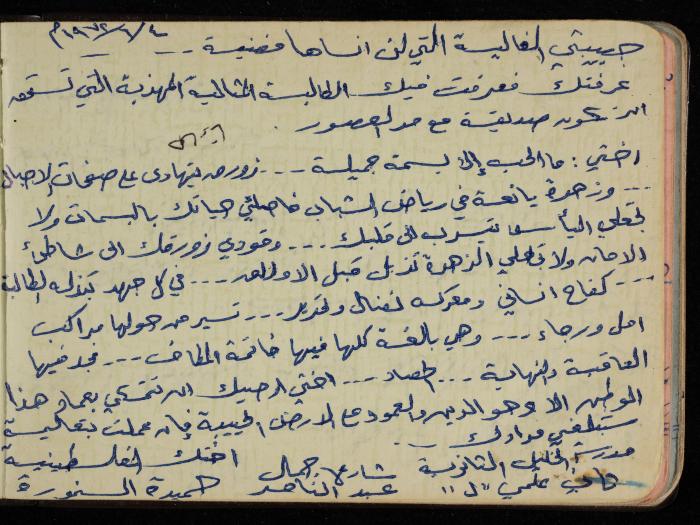 ١٩٧٢/٦/٤م
حبيبتي الغالية التي لن انساها فضية ...
عرفتك فعرفت فيك الطالبة المثالية المهذبة التي تستحق
ان تكون صديقة مع مر العصور
اختي : ما الحب إلا بسمة جميلة ... زورق يتهادى على صفحات الاجيال
... وزهرة يانعة في رياض الشباب فاملئي حياتك بالبسمات ولا
تجعلي اليأس يتسرب الى قلبك ... وقودي زورقك الى شاطئ
الامان ولا تجعلي الزهرة تذبل قبل الاوان ... في كل جهد تبذله الطالبة
... كفاح انساني ومعركة نضال وتحرير ... تسير من حولها مواكب
امل ورجاء ... وهي بالغة كلها فيها خاتمة المطاف ... نجد فيها
العاقبة والنهاية ... الحصاد ... اختي اوصيك ان تتمسكي بعماد هذا
الوطن الا وهو الدين والعودة الارض الحبيبة فإن عملت بعكسية
ستبلغي مرادك ..
مدرسة الخليل الثانوية شارع جمال اختك الفلسطينية
ثاني علمي "ل" عبد الناصر حميدة السنورة